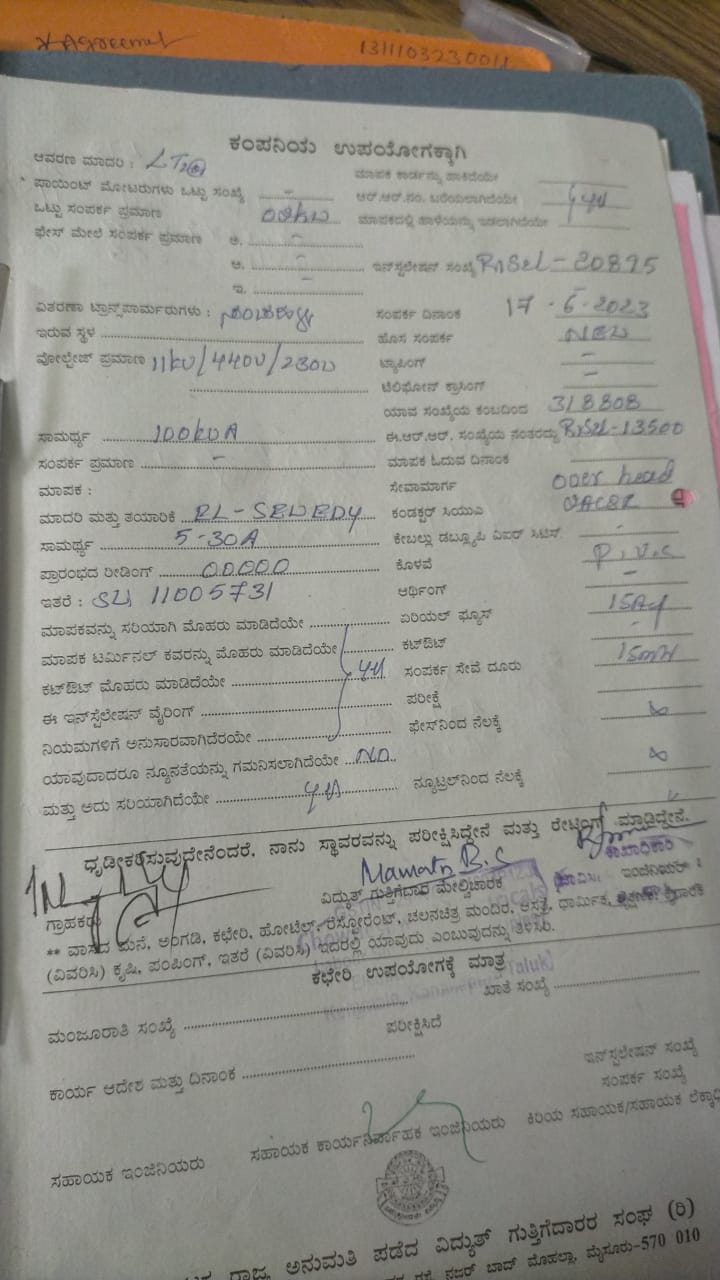 * Agreement 13111032300
ಕಂಪನಿಯ ಉಪಯೋಗಕ್ಕಾಗಿ
ಆವರಣ ಮಾದರಿ : LT2(a) ಮಾಪಕ ಕಾರ್ಡನ್ನು ಹಾಕಿದೆಯೇ
ಪಾಯಿಂಟ್ ಮೋಟರುಗಳು ಒಟ್ಟು ಸಂಖ್ಯೆ – ಆರ್.ಆರ್.ನಂ. ಬರೆಯಲಾಗಿದೆಯೇ
ಒಟ್ಟು ಸಂಪರ್ಕ ಪ್ರಮಾಣ ಮಾಪಕದಲ್ಲಿ ಹಾಳೆಯನ್ನು ಇಡಲಾಗಿದೆಯೇ
ಫೇಸ್ ಮೇಲೆ ಸಂಪರ್ಕ ಪ್ರಮಾಣ ಅ. –
ಆ. – ಇನ್‌ಸ್ಟಲೇಷನ್ ಸಂಖ್ಯೆ 20895
ಇ. –
ವಿತರಣಾ ಟ್ರಾನ್ಸ್‌ಪಾರ್ಮರುಗಳು : ಸಂಪರ್ಕ ದಿನಾಂಕ 17-6-2023
ಇರುವ ಸ್ಥಳ ಹೊಸ ಸಂಪರ್ಕ NEW
ವೋಲ್ಟೇಜ್ ಪ್ರಮಾಣ 11KV/440V/230V ಟ್ಯಾಪಿಂಗ್ –
ಟೆಲಿಫೋನ್ ಕ್ರಾಸಿಂಗ್ –
ಯಾವ ಸಂಖ್ಯೆಯ ಕಂಬದಿಂದ 318808
ಸಾಮರ್ಥ್ಯ 100KVA ಈ.ಆರ್.ಆರ್. ಸಂಖ್ಯೆಯ ನಂತರದ್ದು 13500
ಸಂಪರ್ಕ ಪ್ರಮಾಣ – ಮಾಪಕ ಓದುವ ದಿನಾಂಕ
ಮಾಪಕ : ಸೇವಾಮಾರ್ಗ over head
ಮಾದರಿ ಮತ್ತು ತಯಾರಿಕೆ ಕಂಡಕ್ಟರ್ ಸಿಯುಎ
ಸಾಮರ್ಥ್ಯ 5-30A ಕೇಬಲ್ಲು ಡಬ್ಲ್ಯೂಪಿ ವಿಐರ್ ಸಿಟಿಸ್ -
ಪ್ರಾರಂಭದ ರೀಡಿಂಗ್ 00000 ಕೊಳವೆ P.V.C
ಇತರೆ : SL 11005731 ಆರ್ಥಿಂಗ್ –
ಮಾಪಕವನ್ನು ಸರಿಯಾಗಿ ಮೊಹರು ಮಾಡಿದೆಯೇ ಏರಿಯಲ್ ಫ್ಯೂಸ್
ಮಾಪಕ ಟರ್ಮಿನಲ್ ಕವರನ್ನು ಮೊಹರು ಮಾಡಿದೆಯೇ ಕಟ್‌ಔಟ್ -
ಕಟ್‌ಔಟ್ ಮೊಹರು ಮಾಡಿದೆಯೇ ಸಂಪರ್ಕ ಸೇವೆ ದೂರು
ಈ ಇನ್‌ಸ್ಟೆಲೇಷನ್ ವೈರಿಂಗ್ ಪರೀಕ್ಷೆ
ನಿಯಮಗಳಿಗೆ ಅನುಸಾರವಾಗಿದೆರಯೇ ಫೇಸ್‌ನಿಂದ ನೆಲಕ್ಕೆ ∞
ಯಾವುದಾದರೂ ನ್ಯೂನತೆಯನ್ನು ಗಮನಿಸಲಾಗಿದೆಯೇ NO
ಮತ್ತು ಅದು ಸರಿಯಾಗಿದೆಯೇ ನ್ಯೂಟ್ರಲ್‌ನಿಂದ ನೆಲಕ್ಕೆ ∞
ಧೃಡೀಕರಿಸುವುದೇನೆಂದರೆ, ನಾನು ಸ್ಥಾವರವನ್ನು ಪರೀಕ್ಷಿಸಿದ್ದೇನೆ ಮತ್ತು ರೇಟಿಂಗ್ ಮಾಡಿದ್ದೇನೆ.
Mamata B.S
ಗ್ರಾಹಕರು ವಿದ್ಯುತ್ ಗುತ್ತಿಗೆದಾರ ಮೇಲ್ವಿಚಾರಕ ಇಂಜಿನಿಯರ್
** ವಾಸದ ಮನೆ, ಅಂಗಡಿ, ಕಛೇರಿ, ಹೋಟೆಲ್, ರೆಸ್ಟೋರೆಂಟ್, ಚಲನಚಿತ್ರ ಮಂದಿರ, ಆಸ್ಪತ್ರೆ, ಧಾರ್ಮಿಕ, ಶೈಕ್ಷಣಿಕ,
(ವಿವರಿಸಿ) ಕೃಷಿ, ಪಂಪಿಂಗ್, ಇತರೆ (ವಿವರಿಸಿ) ಇದರಲ್ಲಿ ಯಾವುದು ಎಂಬುವುದನ್ನು ತಿಳಿಸಿರಿ.
ಕಛೇರಿ ಉಪಯೋಗಕ್ಕೆ ಮಾತ್ರ
Taluk)
ಮಂಜೂರಾತಿ ಸಂಖ್ಯೆ ಖಾತೆ ಸಂಖ್ಯೆ
ಪರೀಕ್ಷಿಸಿದೆ
ಕಾರ್ಯ ಆದೇಶ ಮತ್ತು ದಿನಾಂಕ ಇನ್‌ಸ್ಟಲೇಷನ್ ಸಂಖ್ಯೆ
ಸಂಪರ್ಕ ಸಂಖ್ಯೆ
ಸಹಾಯಕ ಇಂಜಿನಿಯರು ಸಹಾಯಕ ಕಾರ್ಯನಿರ್ವಾಹಕ ಇಂಜಿನಿಯರು ಕಿರಿಯ ಸಹಾಯಕ/ಸಹಾಯಕ
ರಾಜ್ಯ ಅನುಮತಿ ಪಡೆದ ವಿದ್ಯುತ್ ಗುತ್ತಿಗೆದಾರರ ಸಂಘ (ರಿ)
ರಸ್ತೆ, ನಜರ್ ಬಾದ್ ಮೊಹಲ್ಲಾ, ಮೈಸೂರು-570 010